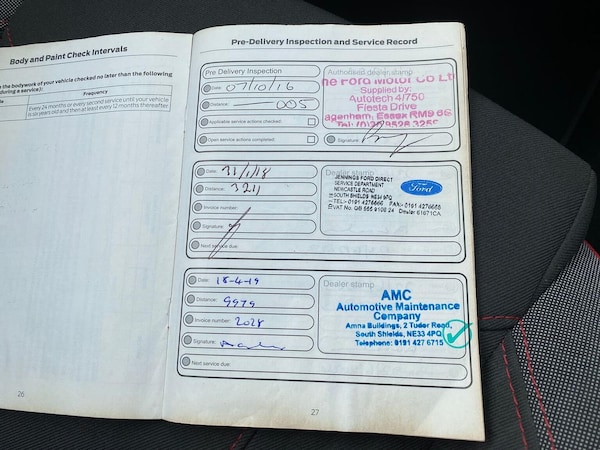 Body and Paint Check Intervals
the bodywork of your vehicle checked no later than the following
during a service):
Frequency
Every 24 months or every second service until your vehicle
is six years old and then at least every 12 months thereafter.
26
Pre-Delivery Inspection and Service Record
Pre Delivery Inspection
Date: 07/10/16
Distance: 005
Applicable service actions checked:
Open service actions completed:
Authorised dealer stamp
he Ford Motor Co Lt
Supplied by:
Autotech 4/750
Fiesta Drive
agenham, Essex RM9 6S
Signature:
Date: 31/1/18
Distance: 3211
Invoice number:
Signature:
Next service due:
Dealer stamp
JENNINGS FORD DIRECT
SERVICE DEPARTMENT
NEWCASTLE ROAD
SOUTH SHIELDS NE34 9PQ
Ford
Date: 18-4-19
Distance: 9979
Invoice number: 2028
Signature:
Next service due:
Dealer stamp
AMC
Automotive Maintenance
Company
Amna Buildings, 2 Tudor Road,
South Shields, NE33 4PQ
Telephone: 0191 427 6715
27